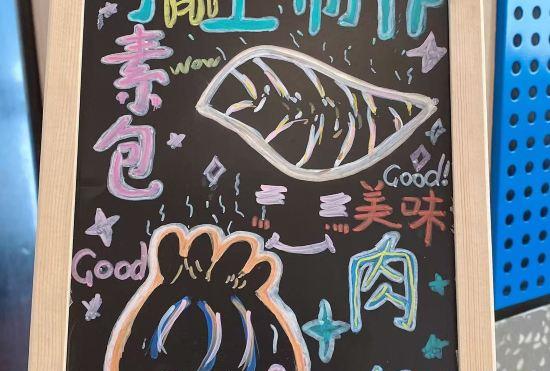 手工制作
素包
Wow
Good!
美味
Good
肉